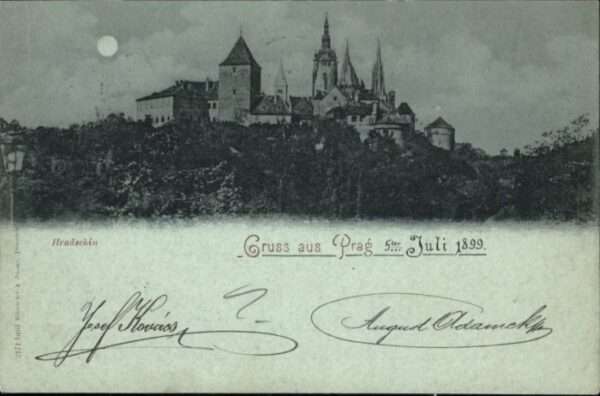 Hradschin
Gruss aus Prag 5ten Juli 1899.
Josef Kovács August Adamek